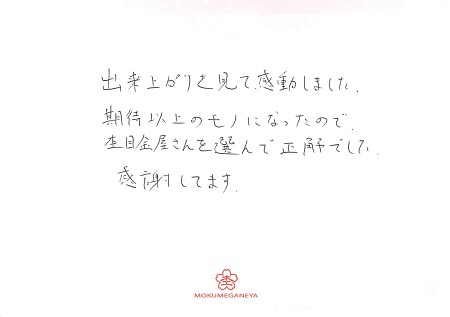 出来上がりを見て、感動しました。
期待以上のモノになったので、
杢目金屋さんを選んで正解でした。
感謝してます。
杢
MOKUMEGANEYA